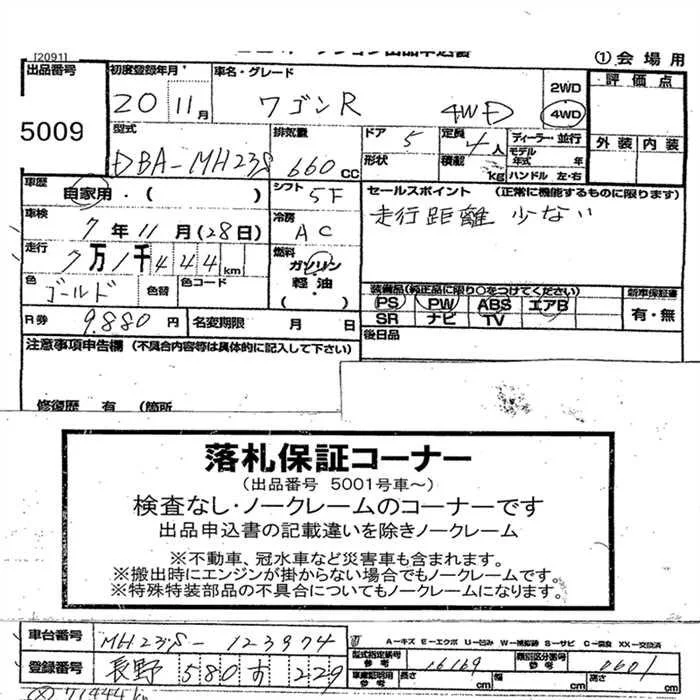 [2091]
①会場用
出品番号 初度登録年月 車名・グレード 評価点
5009 20 11月 ワゴンR 4WD 2WD 4WD
型式 排気量 ドア 定員 ディーラー・並行 外装 内装
DBA-MH23S 660CC 5 4人 モデル年式 年
形状 積載 kg ハンドル 左・右
車歴 自家用・( ) シフト 5F セールスポイント (正常に機能するものに限ります)
車検 7年11月(28日) 冷房 AC 走行距離 少ない
走行 7万1千444km 燃料 ガソリン 軽油 ・( )
色 ゴールド 色替 色コード
装備品(純正品に限り○をつけてください) 新車保証書
PS PW ABS エアB 有・無
SR ナビ TV
R券 9,880円 名変期限 月 日 後日品
注意事項申告欄 (不具合内容等は具体的に記入して下さい)
修復歴 有 (箇所
落札保証コーナー
(出品番号 5001号車~)
検査なし・ノークレームのコーナーです
出品申込書の記載違いを除きノークレーム
※不動車、冠水車など災害車も含まれます。
※搬出時にエンジンが掛からない場合でもノークレームです。
※特殊特装部品の不具合についてもノークレームになります。
車台番号 MH23S-123974 A-キズ E-エクボ U-凹み W-補修跡 S-サビ C-腐食 XX-交換済
型式指定番号 参考 16169 類別区分番号 参考 0601
登録番号 長野 580 す 229 車庫証明用 参考 長さ cm 幅 cm 高さ cm
71444km